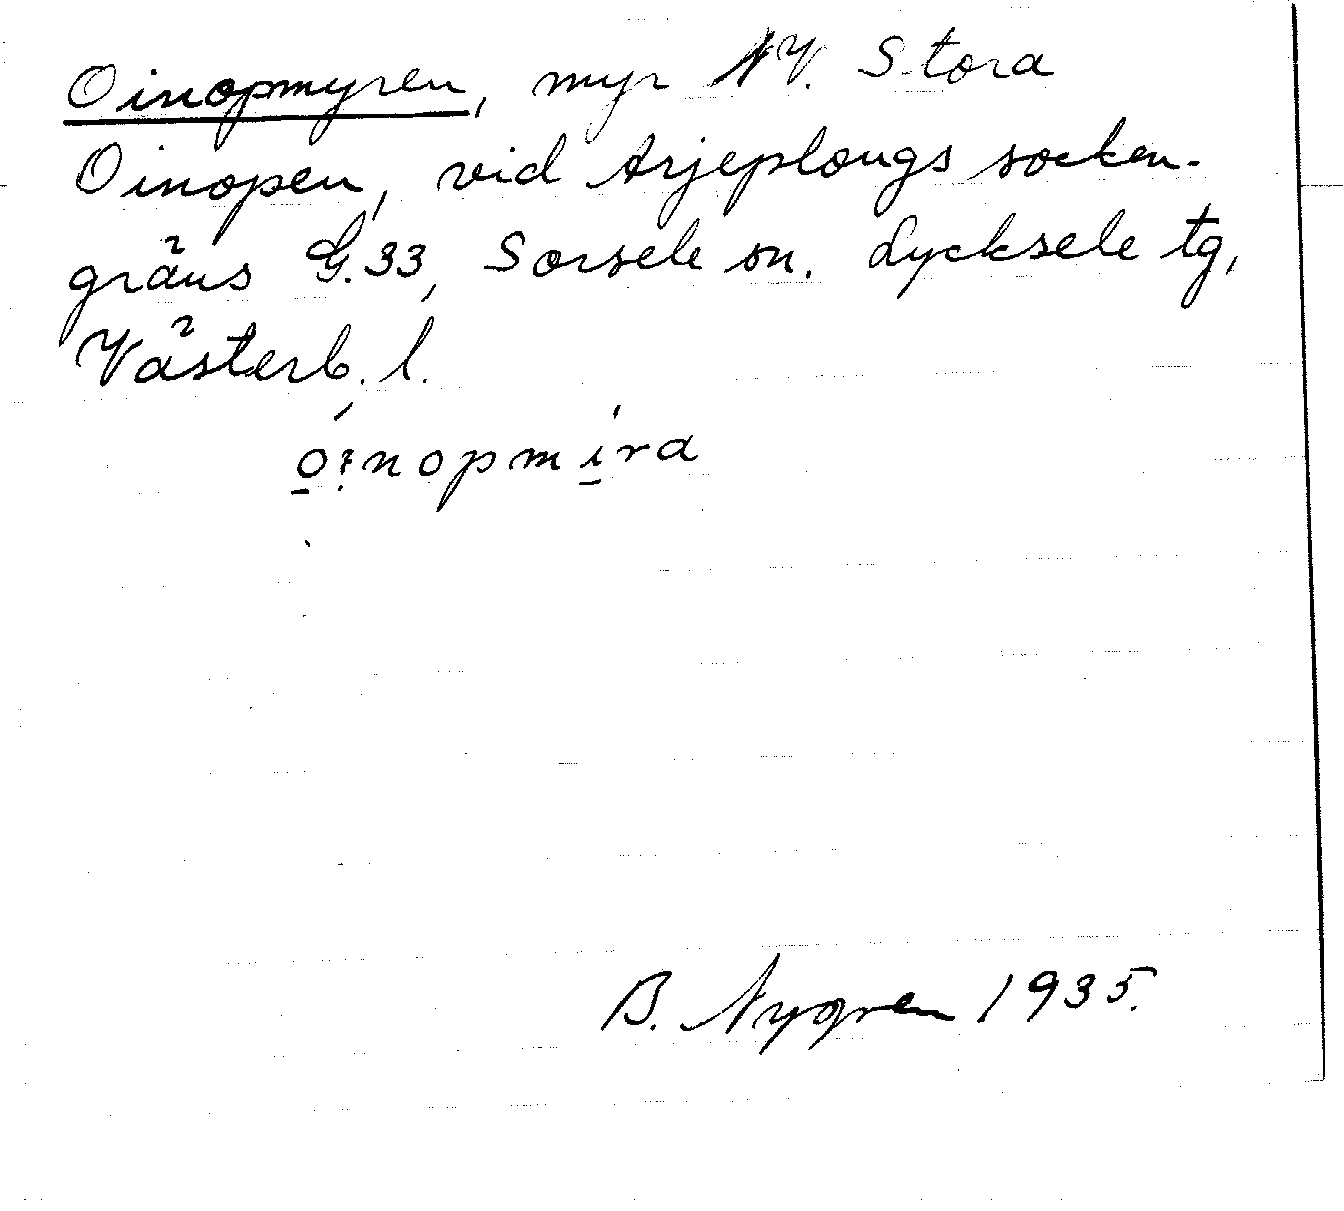 Oinopmyren, myr NV. Stora
Oinopen, vid Arjeplougs socken-
gräns G.33, Sorsele sn. Lycksele tg,
Västerb. l.
B. Nygren 1935.